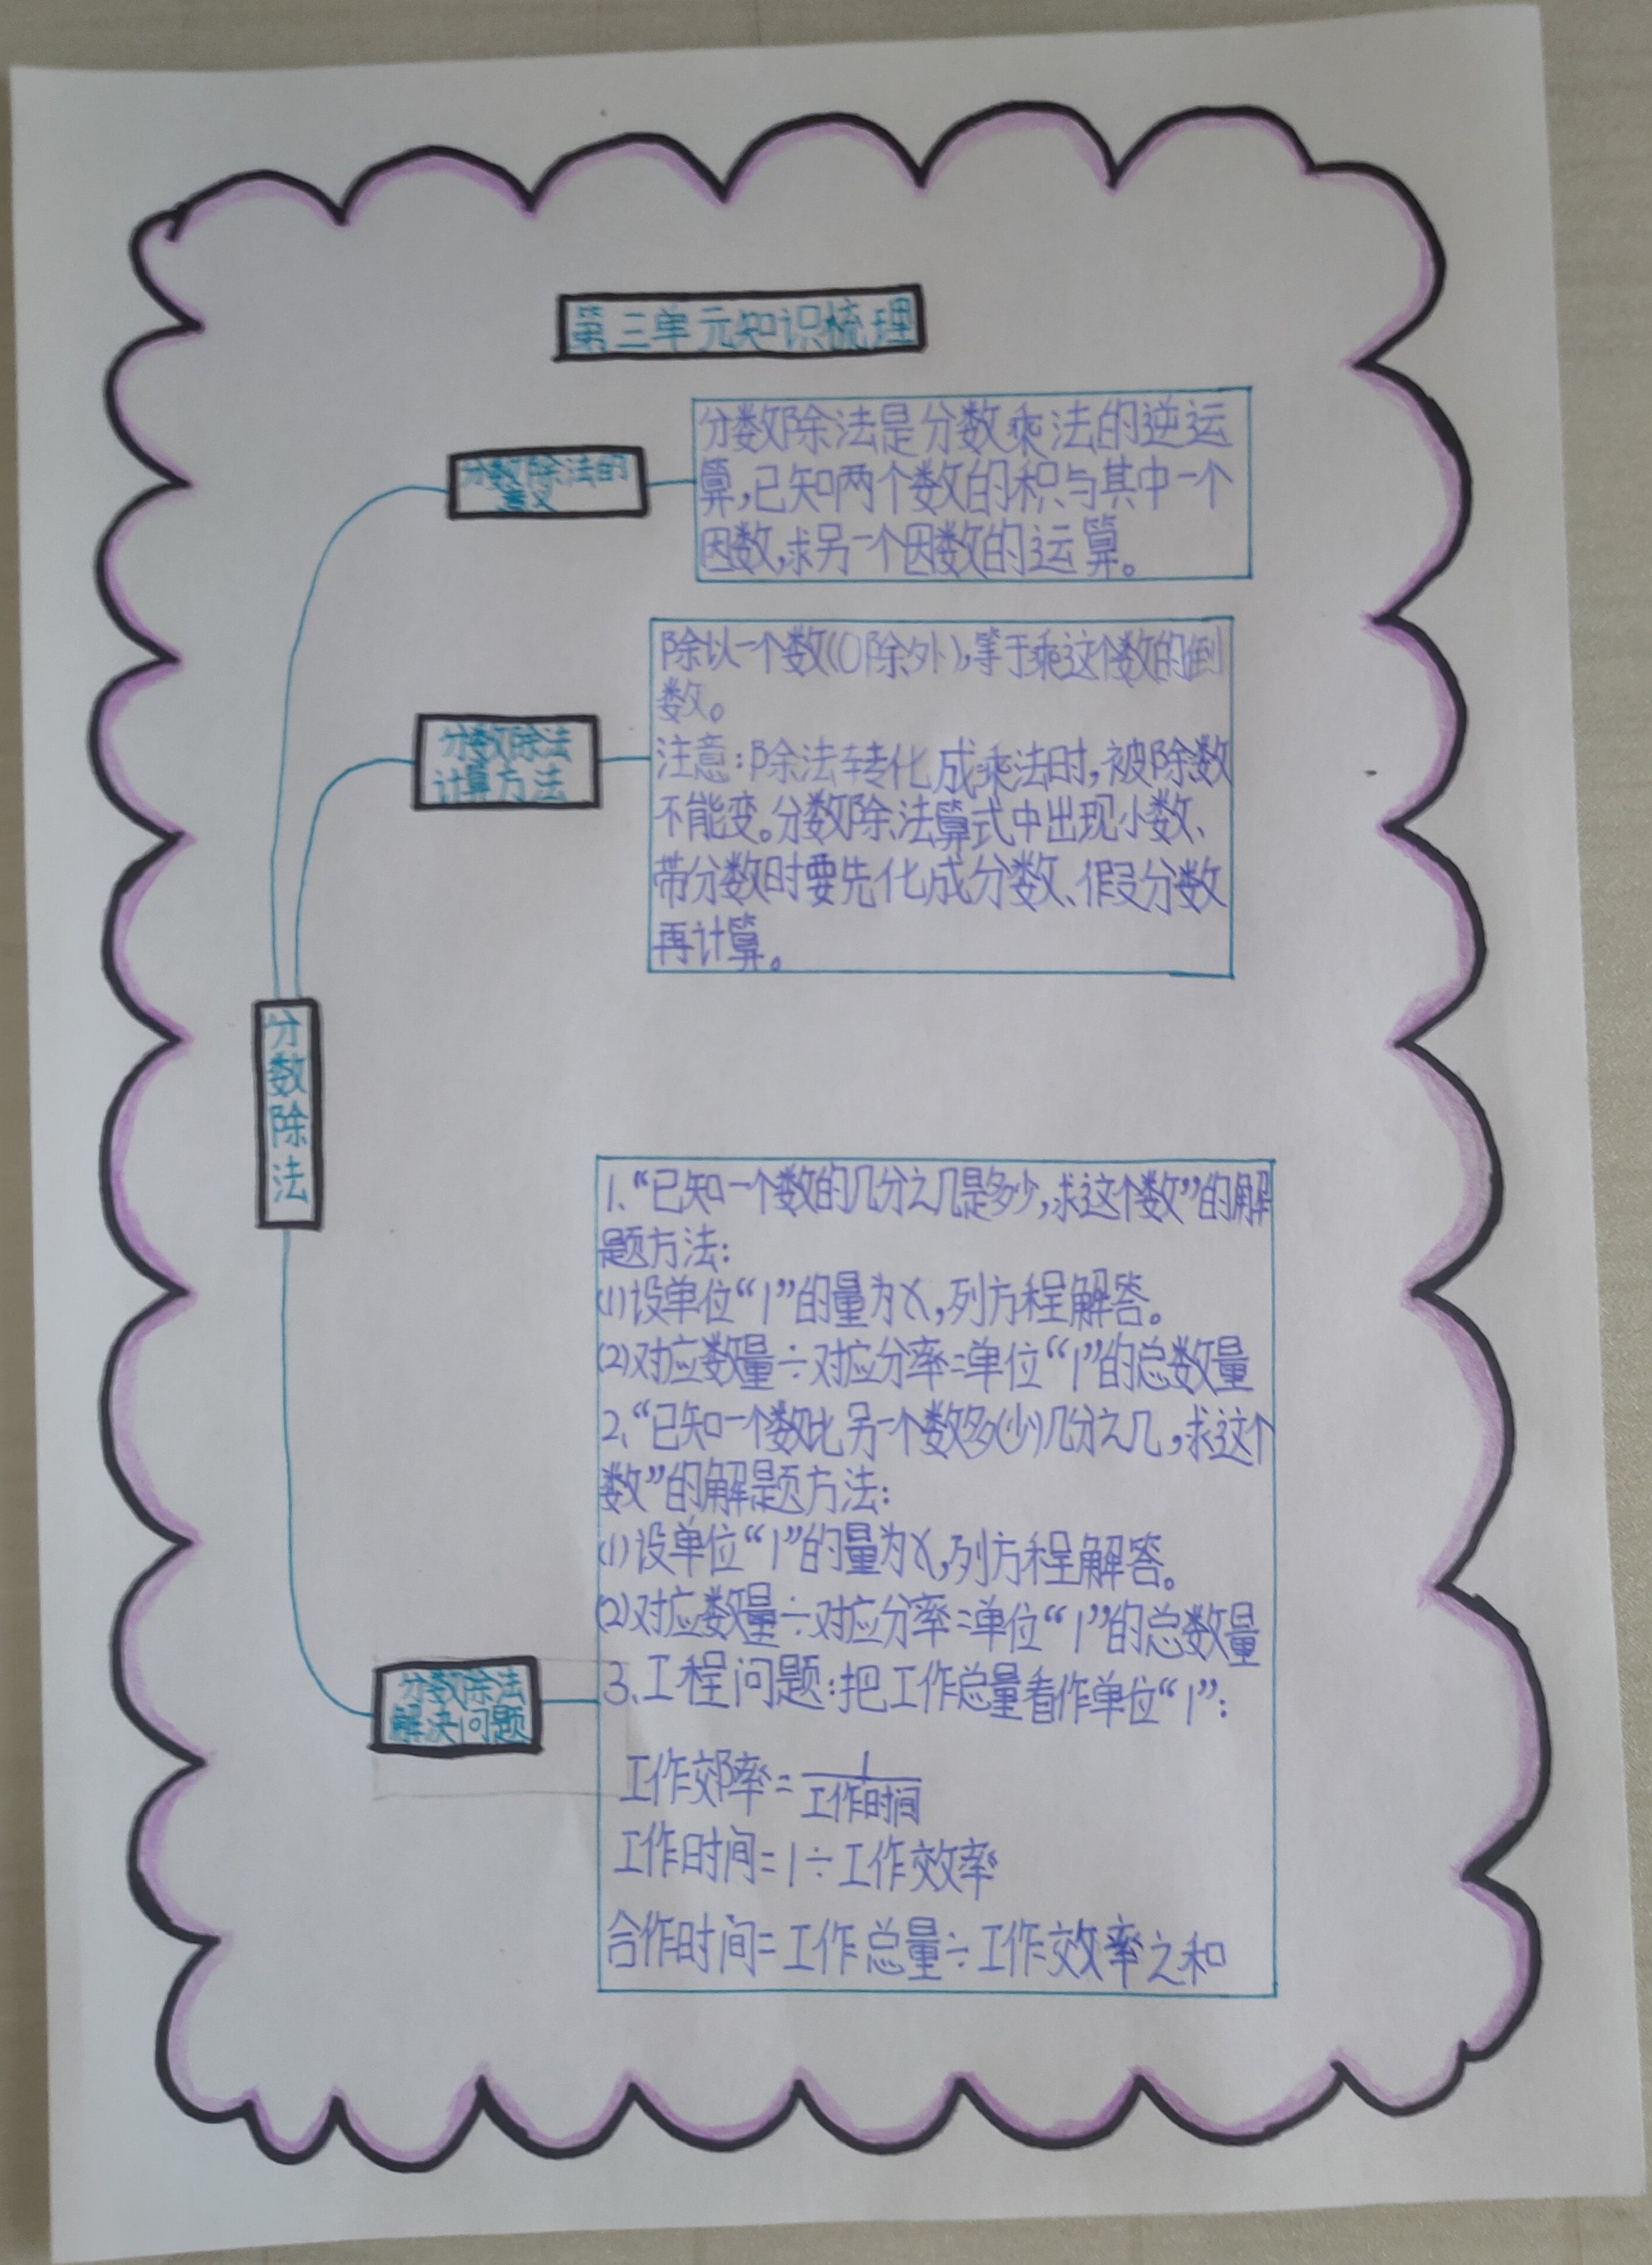 第三单元知识梳理
分数除法的
意义
分数除法是分数乘法的逆运
算,已知两个数的积与其中一个
因数,求另一个因数的运算。
分数除法
计算方法
除以一个数(0除外),等于乘这个数的倒
数。
注意:除法转化成乘法时,被除数
不能变。分数除法算式中出现小数、
带分数时要先化成分数、假分数
再计算。
分数除法
分数除法
解决问题
1、“已知一个数的几分之几是多少,求这个数”的解
题方法:
(1)设单位“1”的量为X,列方程解答。
(2)对应数量÷对应分率=单位“1”的总数量
2、“已知一个数比另一个数多(少)几分之几,求这个
数”的解题方法:
(1)设单位“1”的量为X,列方程解答。
(2)对应数量÷对应分率=单位“1”的总数量
3、工程问题:把工作总量看作单位“1”:
工作郊率=1/工作时间
工作时间=1÷工作效率
合作时间=工作总量÷工作效率之和